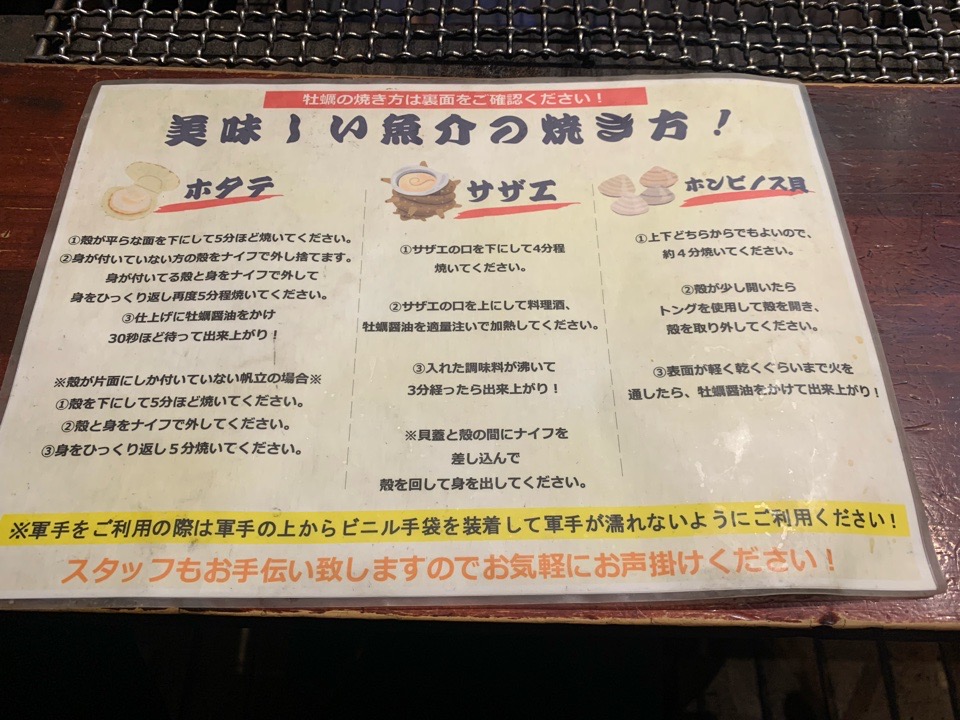 牡蠣の焼き方は裏面をご確認ください!
美味しい魚介の焼き方!
ホタテ
①殻が平らな面を下にして5分ほど焼いてください。
②身が付いていない方の殻をナイフで外し捨てます。
身が付いてる殻と身をナイフで外して
身をひっくり返し再度5分程焼いてください。
③仕上げに牡蠣醤油をかけ
30秒ほど待って出来上がり!
※殻が片面にしか付いていない帆立の場合※
①殻を下にして5分ほど焼いてください。
②殻と身をナイフで外してください。
③身をひっくり返し5分焼いてください。
サザエ
①サザエの口を下にして4分程
焼いてください。
②サザエの口を上にして料理酒、
牡蠣醤油を適量注いで加熱してください。
③入れた調味料が沸いて
3分経ったら出来上がり!
※貝蓋と殻の間にナイフを
差し込んで
殻を回して身を出してください。
ホンビノス貝
①上下どちらからでもよいので、
約4分焼いてください。
②殻が少し開いたら
トングを使用して殻を開き、
殻を取り外してください。
③表面が軽く乾くぐらいまで火を
通したら、牡蠣醤油をかけて出来上がり!
※軍手をご利用の際は軍手の上からビニル手袋を装着して軍手が濡れないようにご利用ください!
スタッフもお手伝い致しますのでお気軽にお声掛けください!